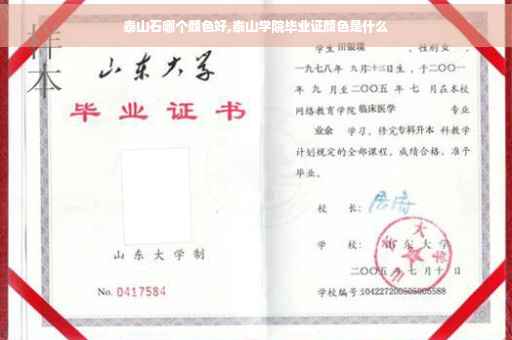 泰山石哪个颜色好,泰山学院毕业证颜色是什么
样本
山东大学
毕业证书
山东大学制
No. 0417584
学生 田银瑞 ，性别 女 ，
一九七八年 九月十三日生，于二〇〇一
年 九 月至二〇〇五 年 七 月在本校
网络教育学院 临床医学 专业
业余 学习，修完专科升本 科教学
计划规定的全部课程，成绩合格，准予
毕业。
校 长：
学 校：山东大学
二〇〇五 年 七 月 十 日
学校编号:104227200505005588